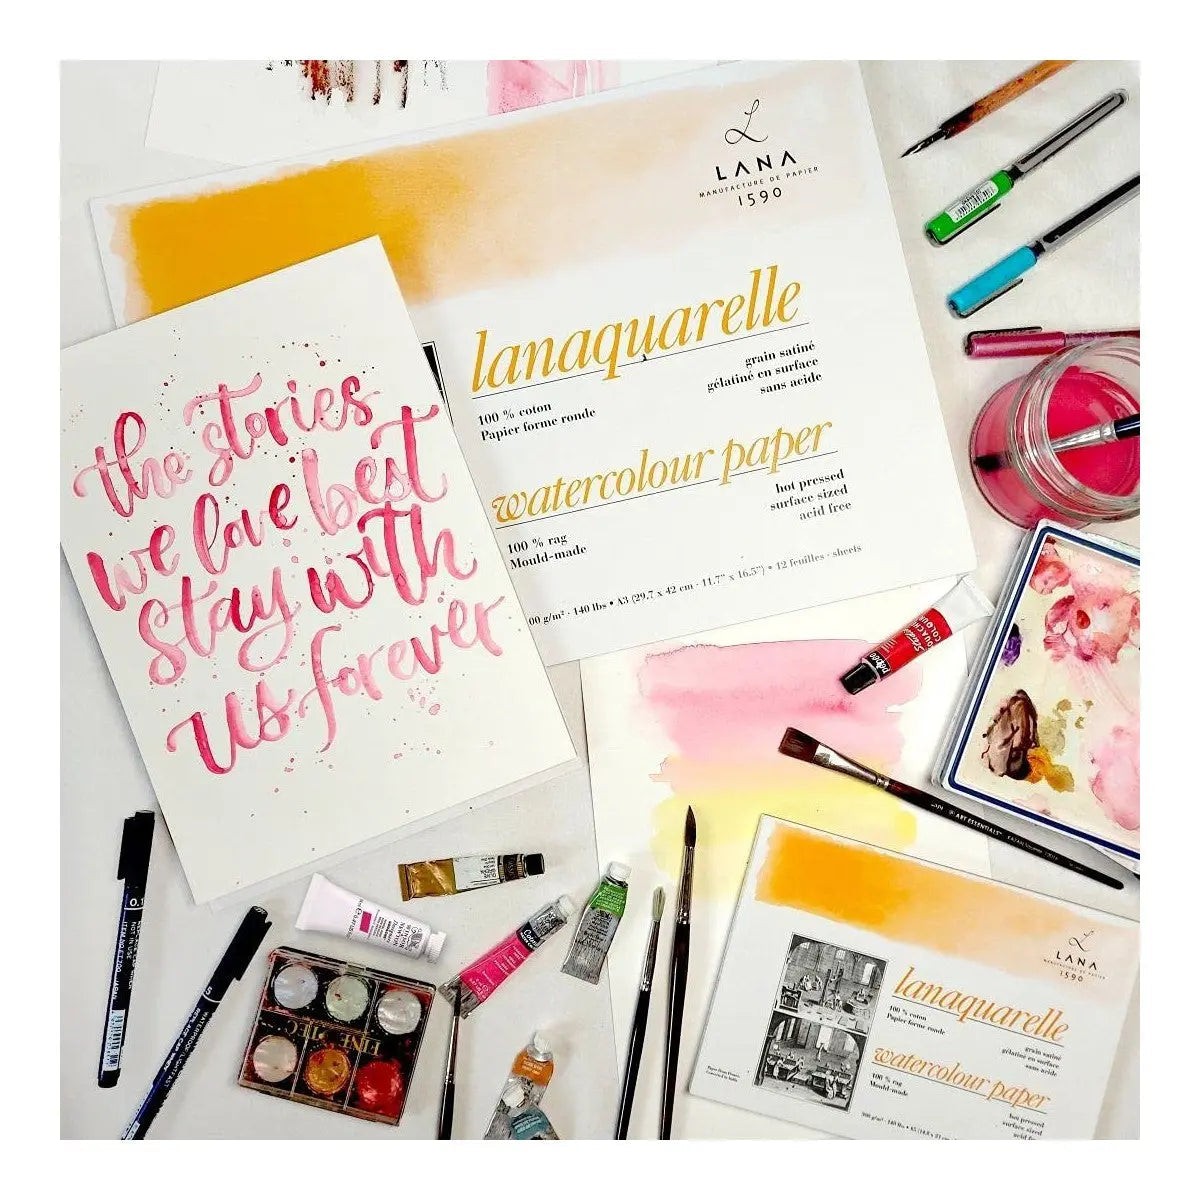 L
LANA
MANUFACTURE DE PAPIER
1590
lanaquarelle
100 % coton
Papier forme ronde
grain satiné
gélatiné en surface
sans acide
watercolour paper
100 % rag
Mould-made
hot pressed
surface sized
acid free
00 g/m² · 140 lbs • A3 (29.7 x 42 cm · 11.7" x 16.5") • 12 feuilles · sheets
the stories
we love best
stay with
us forever
Studio
GOUACHE
COLOUR
pébéo
ART ESSENTIALS
0.1
NOT IN USE
JAPAN
WINSOR
NEWTON
Cotman
FINE TEC
L
LANA
MANUFACTURE DE PAPIER
1590
lanaquarelle
100 % coton
Papier forme ronde
grain satiné
gélatiné en surface
sans acide
watercolour paper
100 % rag
Mould-made
hot pressed
surface sized
acid free
300 g/m² · 140 lbs • A5